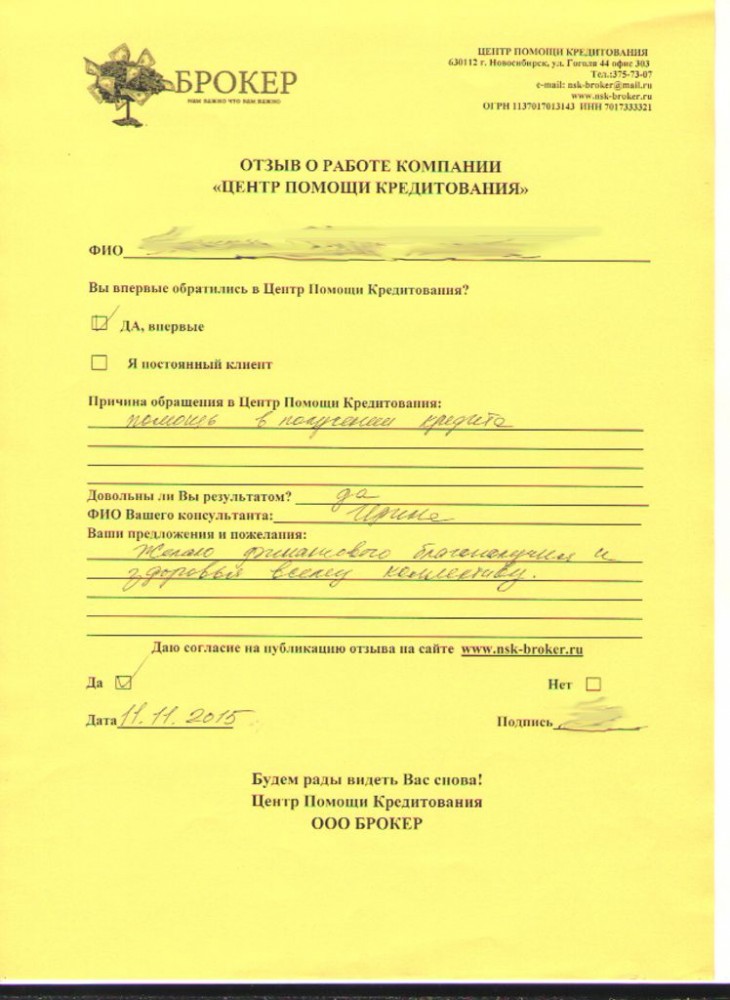 БРОКЕР
НАМ ВАЖНО ЧТО ВАМ ВАЖНО
ЦЕНТР ПОМОЩИ КРЕДИТОВАНИЯ
630112 г. Новосибирск, ул. Гоголя 44 офис 303
Тел.:375-73-07
e-mail: nsk-broker@mail.ru
www.nsk-broker.ru
ОГРН 1137017013143 ИНН 7017333321
ОТЗЫВ О РАБОТЕ КОМПАНИИ
«ЦЕНТР ПОМОЩИ КРЕДИТОВАНИЯ»
ФИО
Вы впервые обратились в Центр Помощи Кредитования?
ДА, впервые
Я постоянный клиент
Причина обращения в Центр Помощи Кредитования:
помощь в получении кредита
Довольны ли Вы результатом? да
ФИО Вашего консультанта: Ирина
Ваши предложения и пожелания:
Желаю финансового благополучия и
здоровья всему коллективу.
Даю согласие на публикацию отзыва на сайте www.nsk-broker.ru
Да Нет
Дата 11.11.2015 Подпись
Будем рады видеть Вас снова!
Центр Помощи Кредитования
ООО БРОКЕР